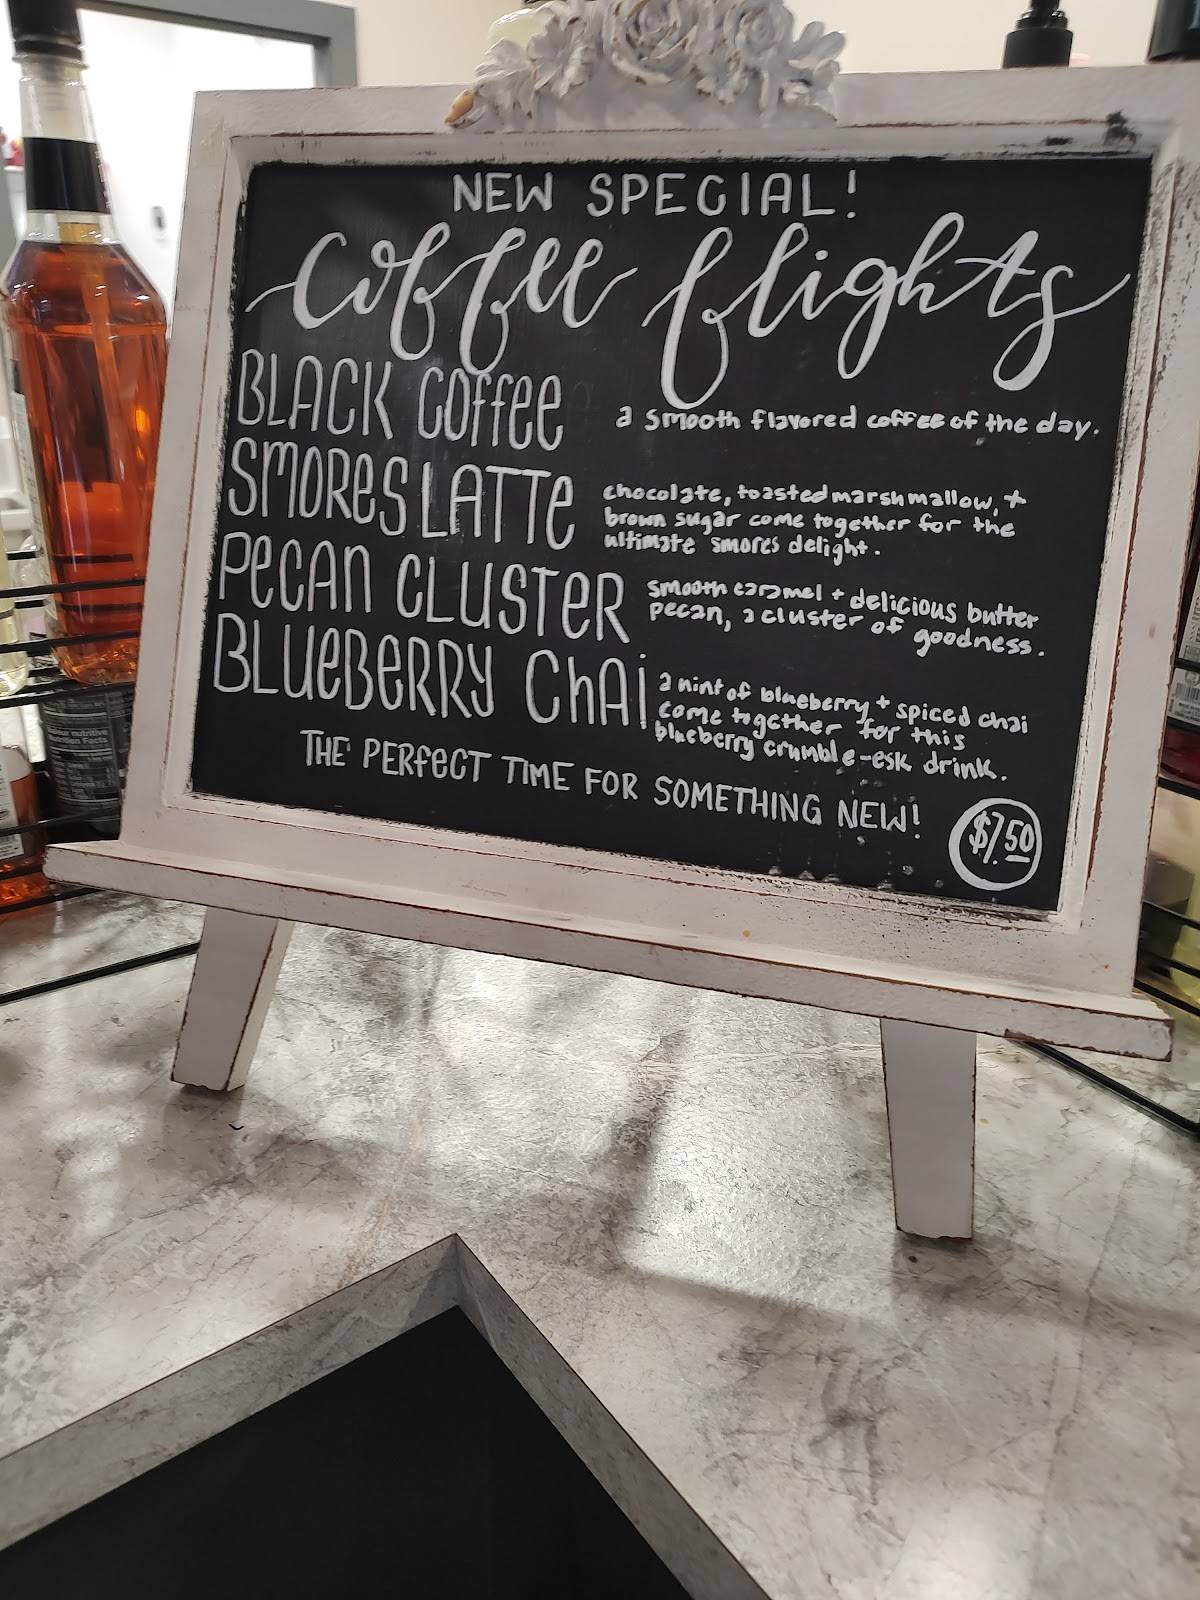 NEW SPECIAL!
Coffee flights
BLACK COffee
a smooth flavored coffee of the day.
SMOReS LATTe
chocolate, toasted marshmallow, +
brown sugar come together for the
ultimate smores delight.
PeCAN CLUSTeR
smooth caramel + delicious butter
pecan, a cluster of goodness.
BLUeBeRRY ChAi
a hint of blueberry + spiced chai
come together for this
blueberry crumble-esk drink.
THE PERFECT TIME FOR SOMETHING NEW!
$7.50